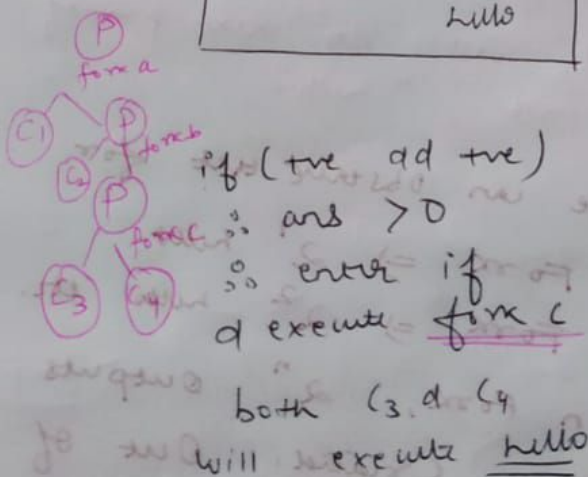 Hello
P
fork a
C1
P
fork b
C2
P
fork c
C3
C4
if (+ve dd +ve)
∴ ans > 0
∴ enter if
d execute fork c
both C3 d C4
will execute Hello